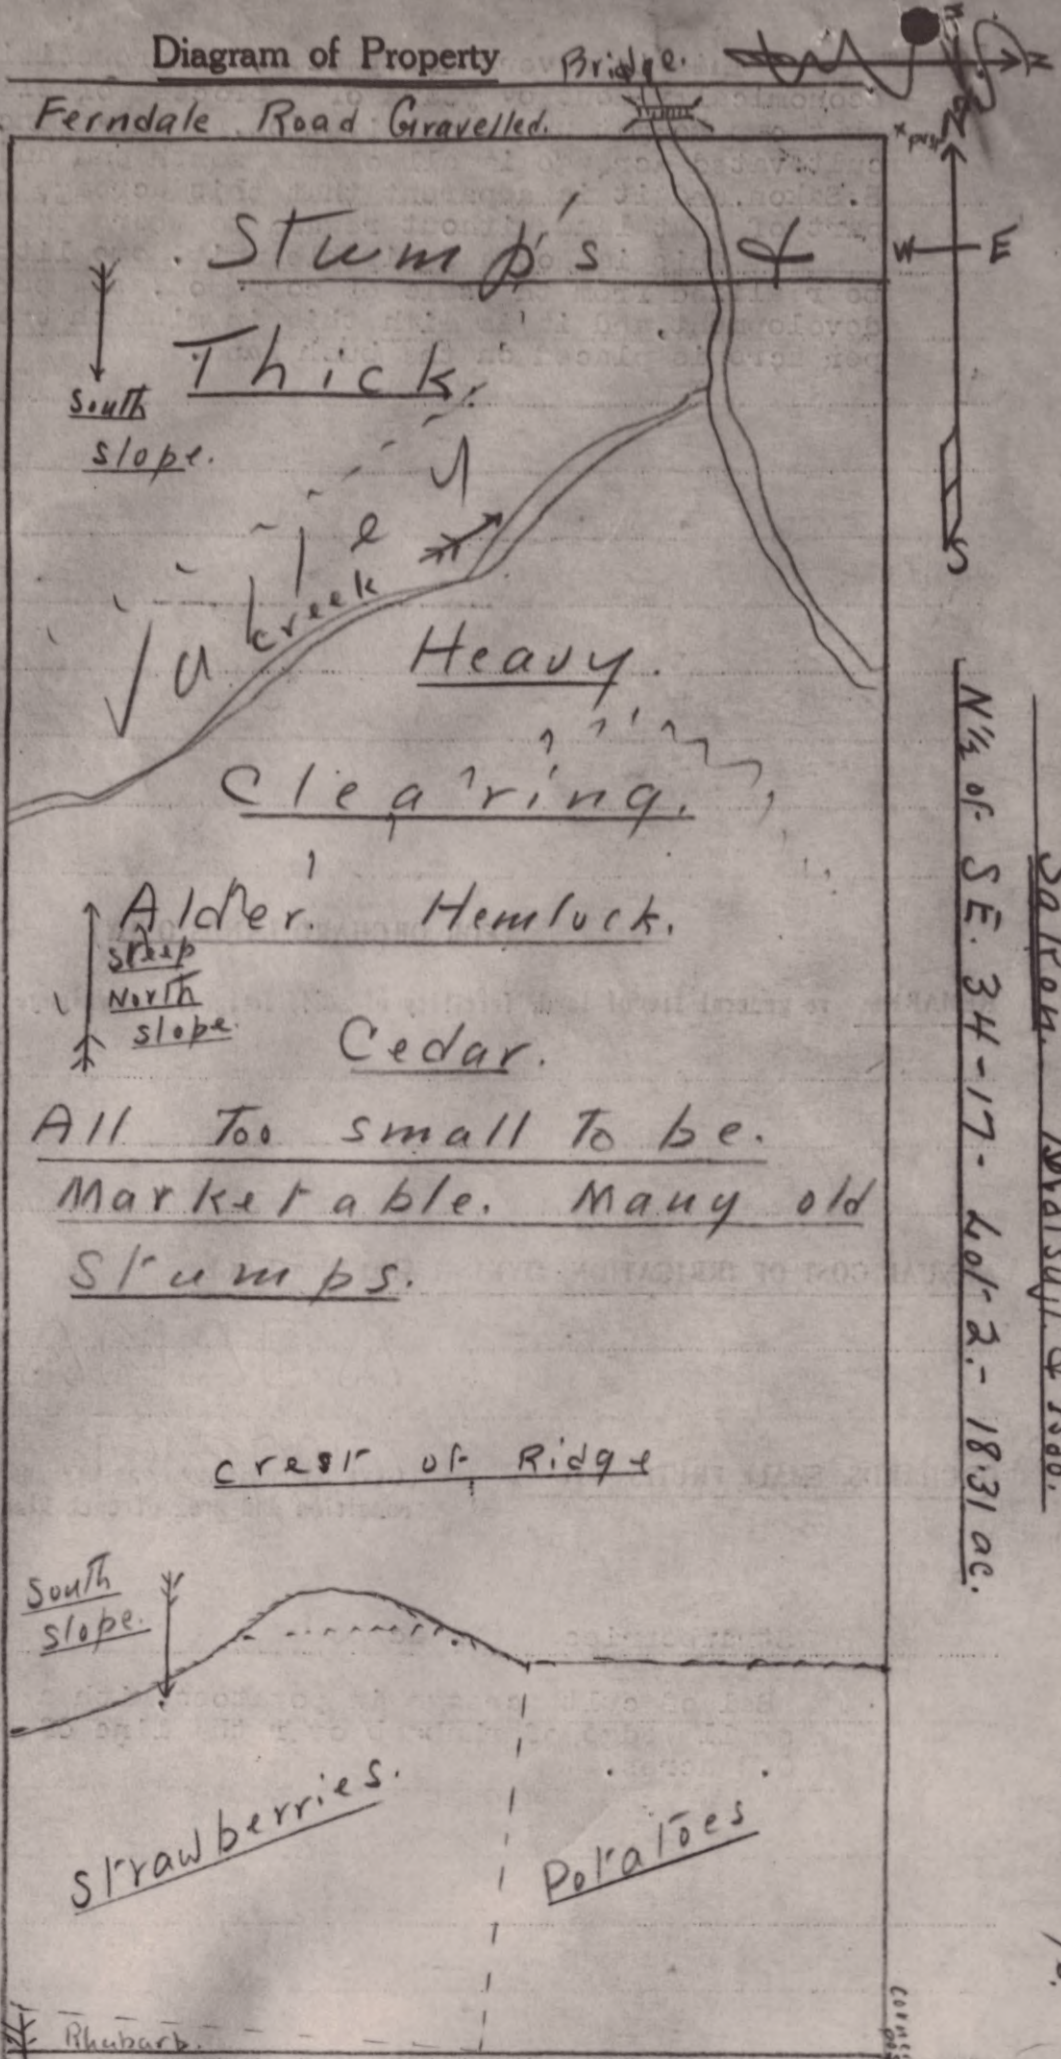 Diagram of Property
Bridge.
N
Ferndale Road Gravelled.
x post
N
Stump's &
W E
Thick.
South
slope.
S
Valley
creek
Heavy.
Clearing.
Alder. Hemlock.
Steep
North
slope.
Cedar.
All Too small To be.
Marketable. Many old
Stumps.
crest of Ridge
South
slope.
Strawberries.
Potatoes
Rhubarb.
corner
post
N½ of S E. 34-17- Lot 2.- 18.31 ac.